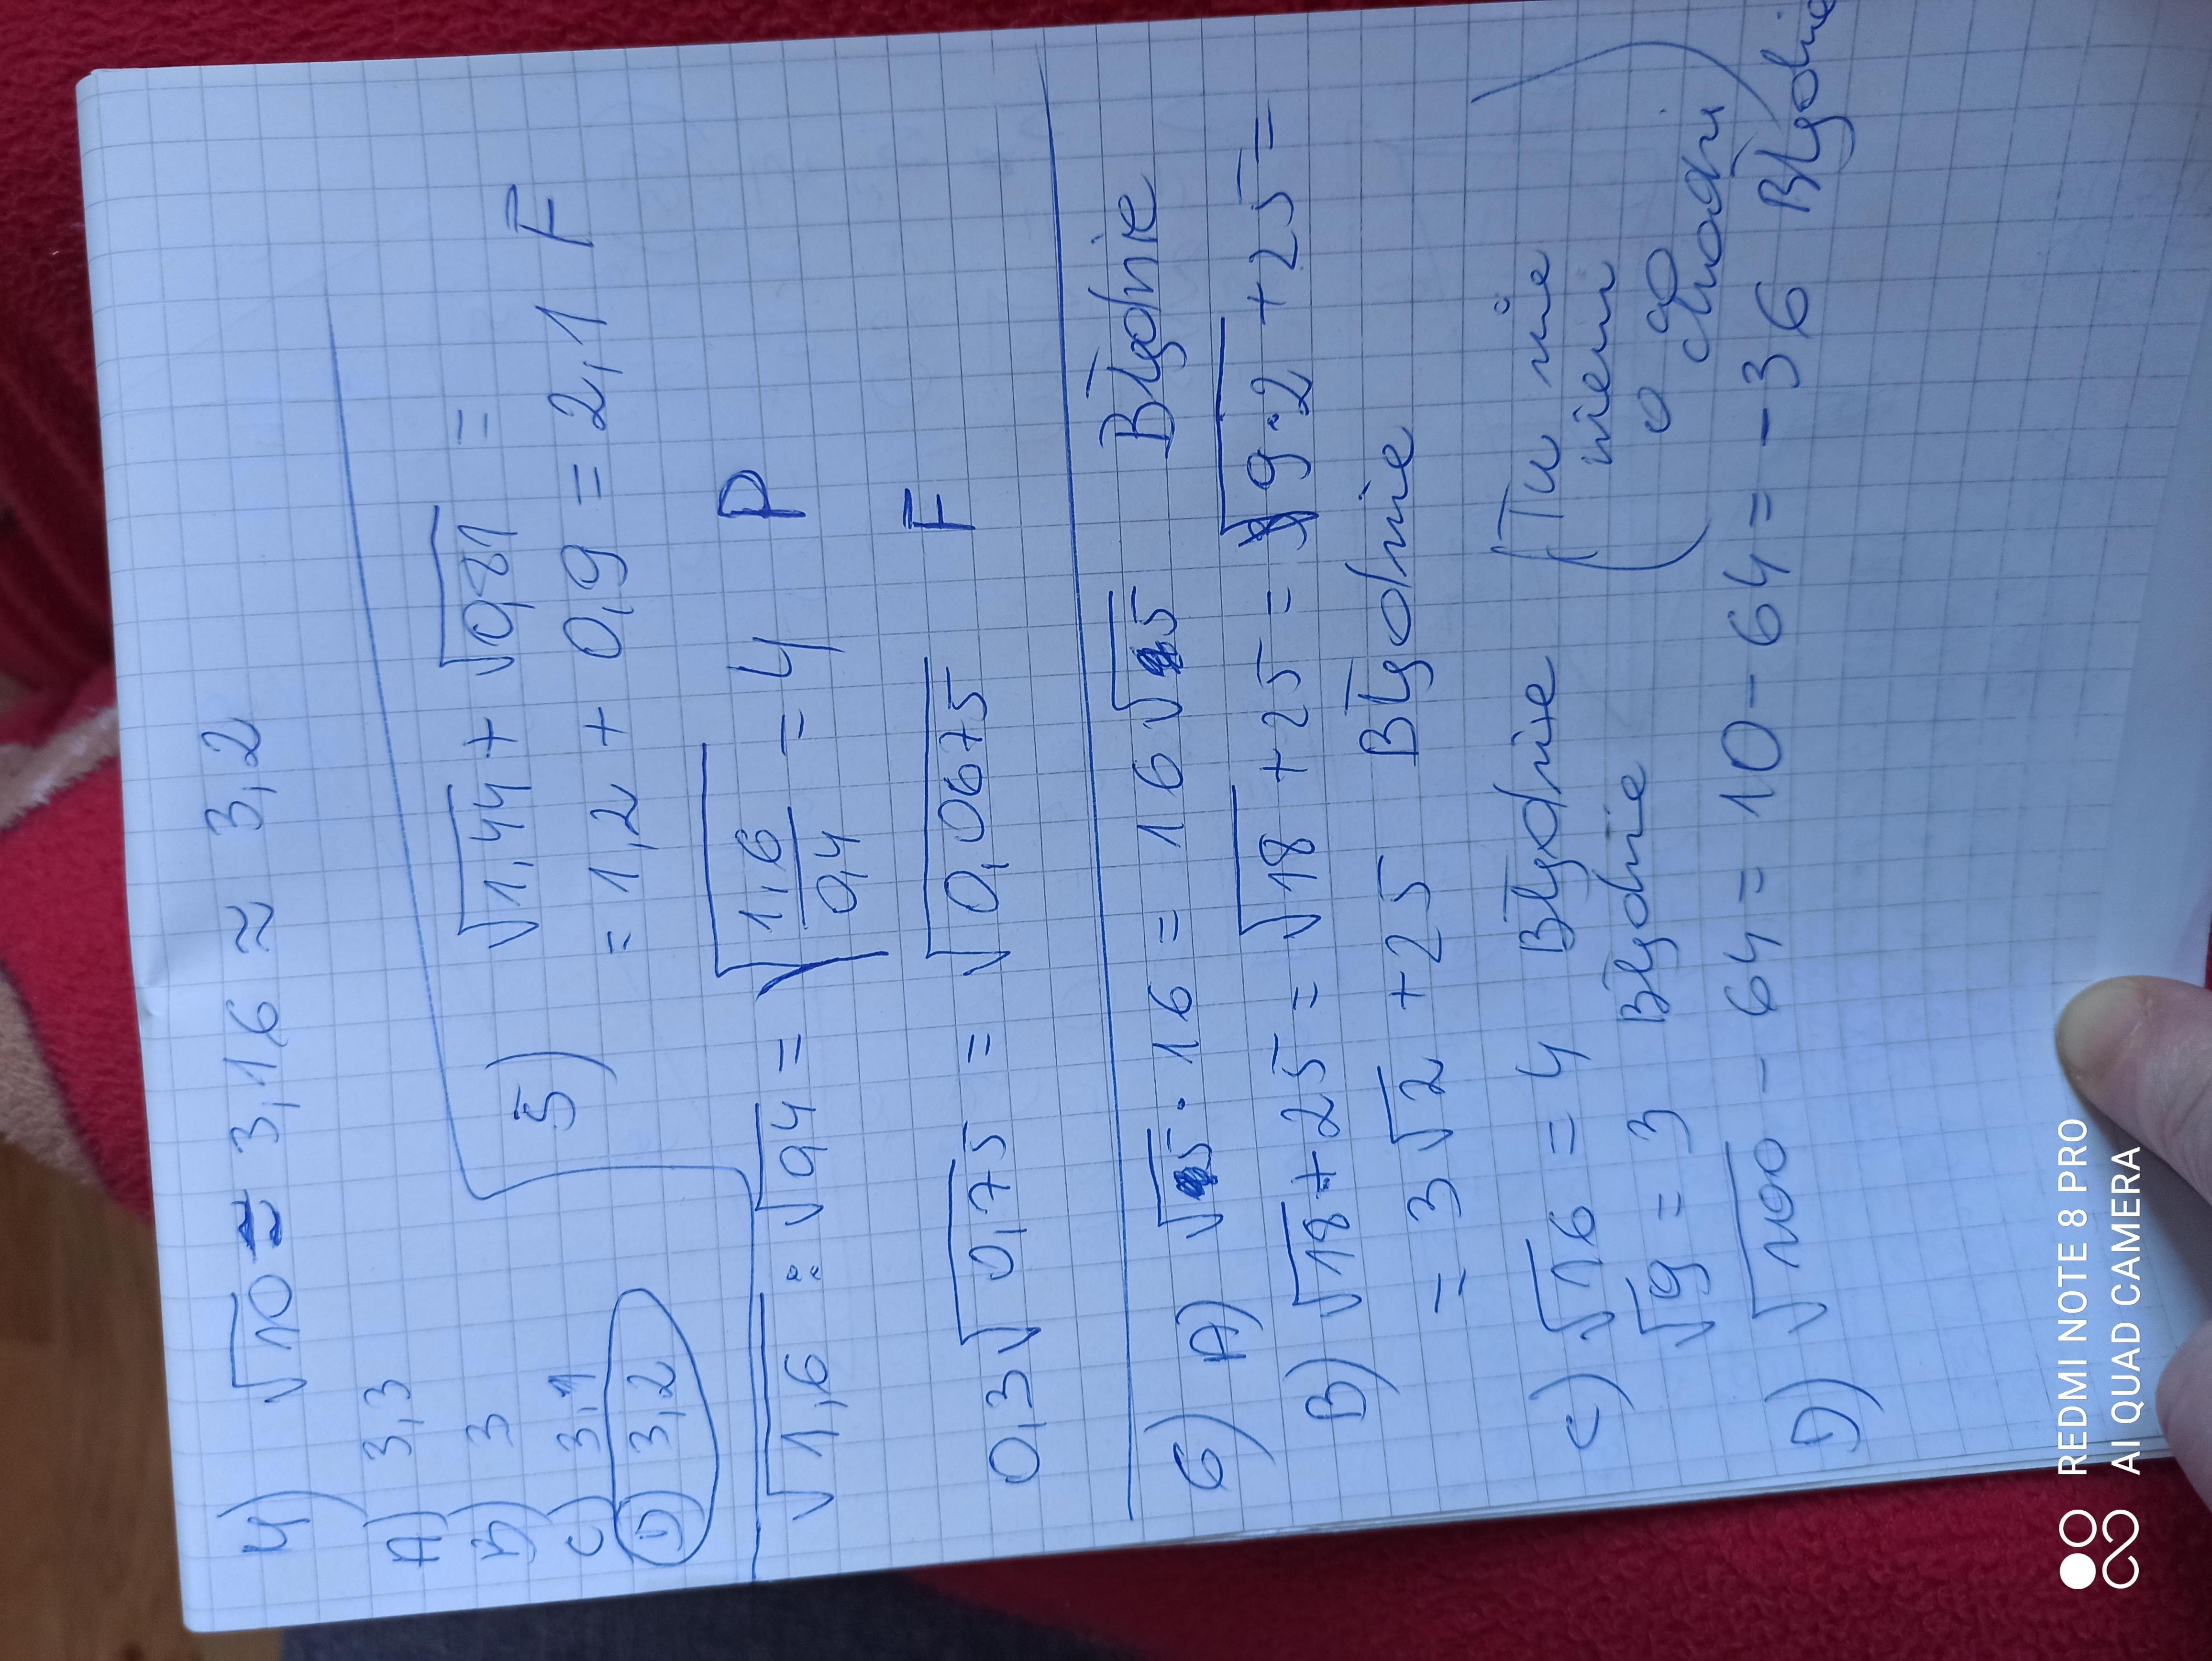 4) √10 ≈ 3,16 ≈ 3,2
A) 3,3
B) 3
C) 3,1
D) 3,2
5) √1,44 + √0,81 =
= 1,2 + 0,9 = 2,1 F
√1,6 : √0,4 = √(1,6/0,4) = 4 P
0,3√0,75 = √0,0675 F
6) A) √5 · 16 = 16√5 Błędnie
B) √18 + 25 = √18 + 25 = √9·2 + 25 =
= 3√2 + 25 Błędnie
C) √16 = 4 Błędnie (Tu nie
√9 = 3 Błędnie wiem
o co chodzi)
D) √100 - 64 = 10 - 64 = -36 Błędnie
REDMI NOTE 8 PRO
AI QUAD CAMERA